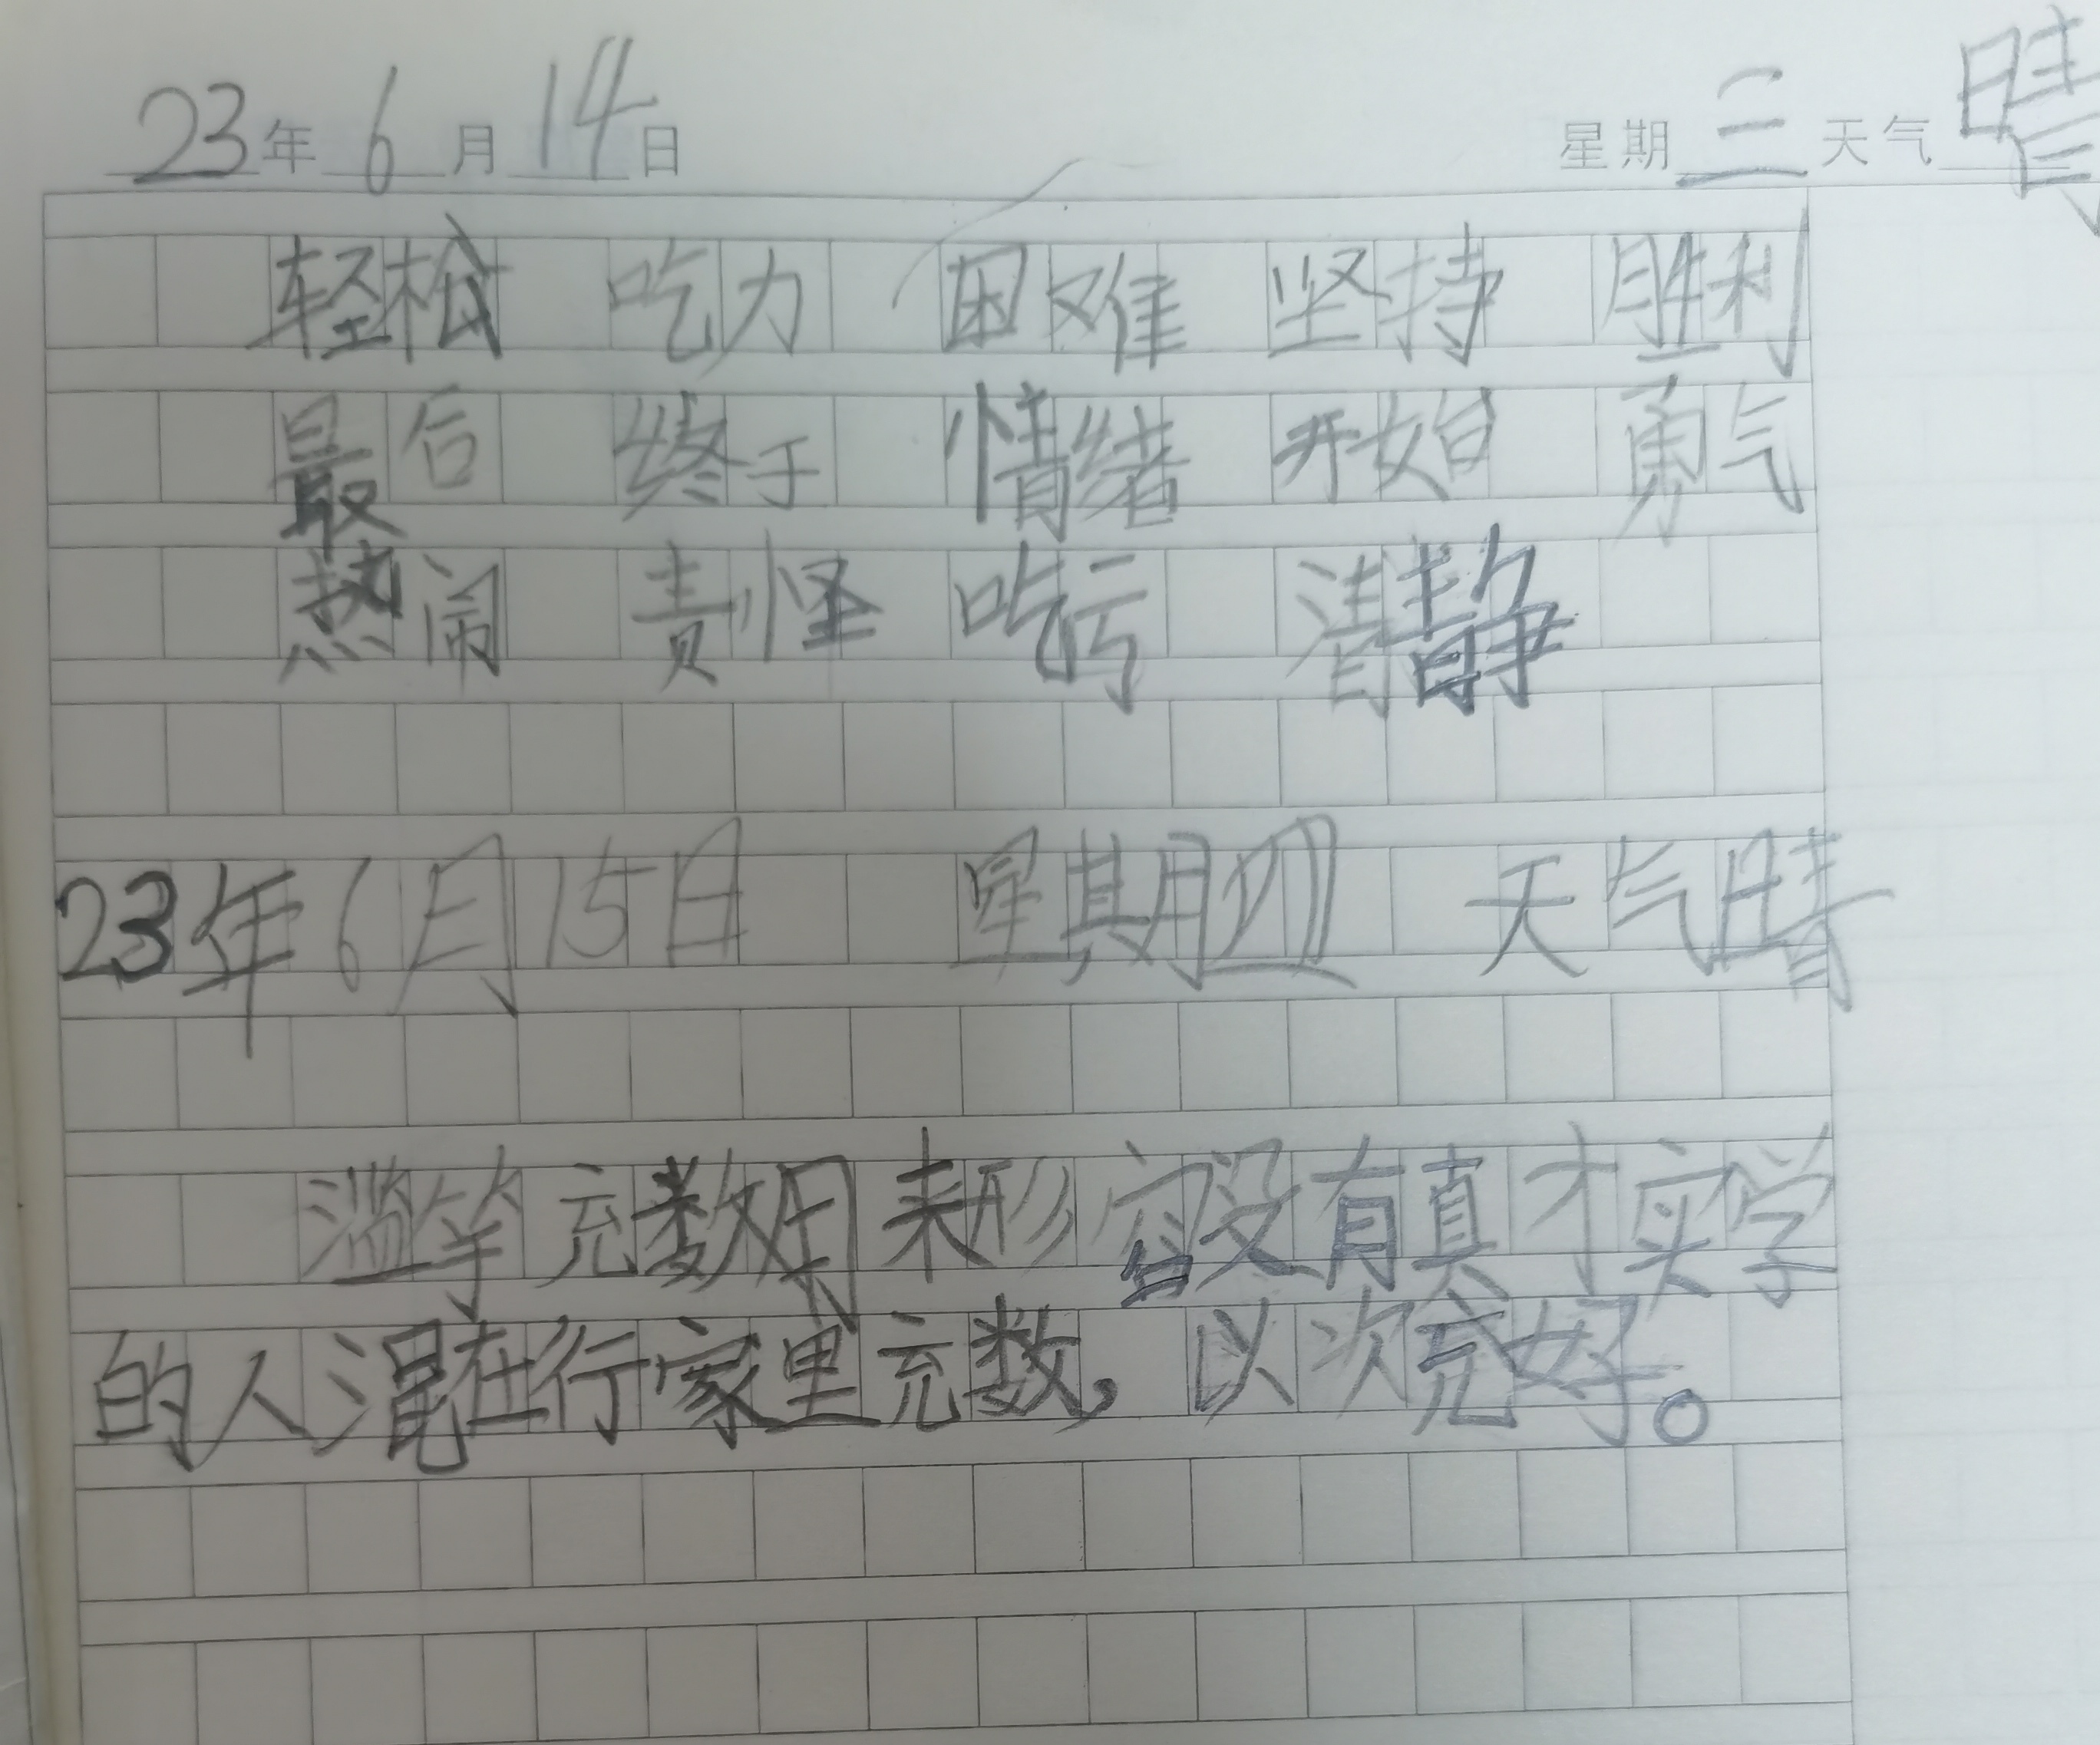 23年6月14日 星期三天气晴
轻松 吃力 困难 坚持 胜利
最后 终于 情绪 开始 勇气
热闹 责怪 吃亏 清静
23年6月15日 星期四 天气晴
滥竽充数用来形容没有真才实学
的人混在行家里充数，以次充好。